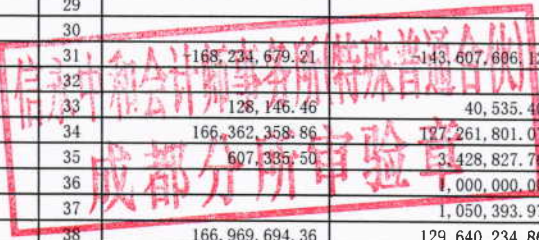 29
30
31 -168,234,679.21 -143,607,606.12
32
33 128,146.46 40,535.40
34 166,362,358.86 127,261,801.07
35 607,335.50 3,428,827.76
36 1,000,000.00
37 1,050,393.97
38 166,969,694.36 129,640,234.86
信永中和会计师事务所(特殊普通合伙)
成都分所审验章